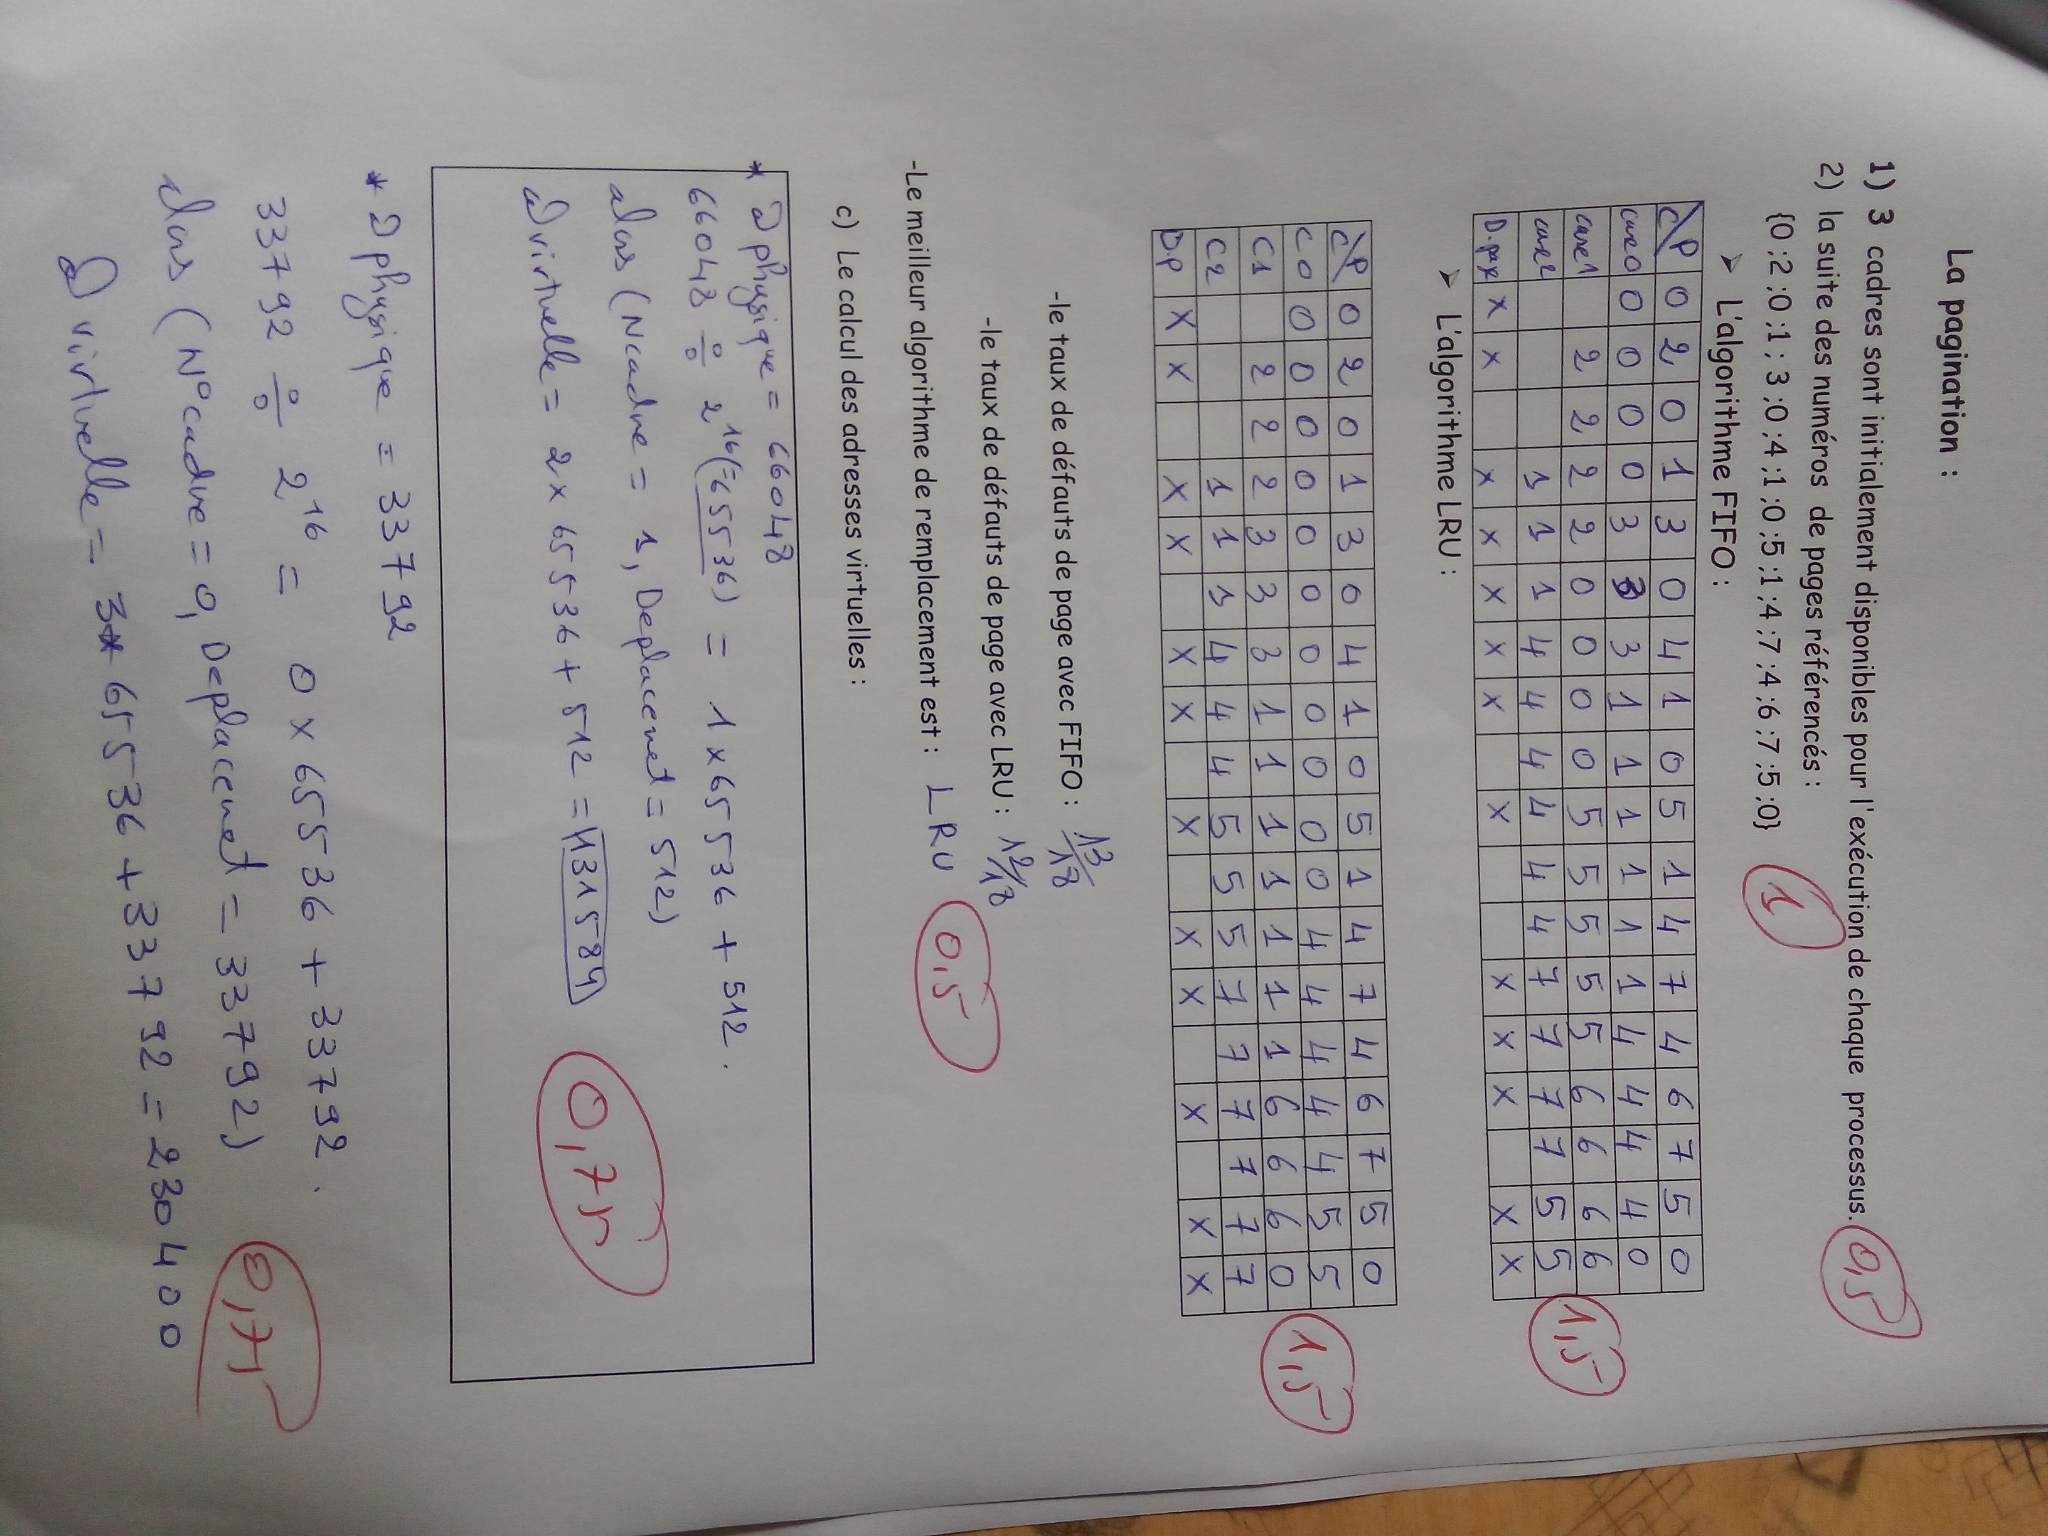 La pagination :
1) 3 cadres sont initialement disponibles pour l'exécution de chaque processus. 0,5
2) la suite des numéros de pages référencés :
{0 ;2 ;0 ;1 ; 3 ;0 ;4 ;1 ;0 ;5 ;1 ;4 ;7 ;4 ;6 ;7 ;5 ;0} 1
➤ L'algorithme FIFO :
C\P 0 2 0 1 3 0 4 1 0 5 1 4 7 4 6 7 5 0
case 0 0 0 0 0 3 3 3 1 1 1 1 1 1 4 4 4 4 0
case 1 2 2 2 2 0 0 0 0 5 5 5 5 5 6 6 6 6
case 2 1 1 1 4 4 4 4 4 4 7 7 7 7 5 5
D.page X X X X X X X X X X X X X 1,5
➤ L'algorithme LRU :
C\P 0 2 0 1 3 0 4 1 0 5 1 4 7 4 6 7 5 0
C0 0 0 0 0 0 0 0 0 0 0 0 4 4 4 4 4 5 5
C1 2 2 2 3 3 3 1 1 1 1 1 1 1 6 6 6 0
C2 1 1 1 4 4 4 5 5 5 7 7 7 7 7 7
D.P X X X X X X X X X X X X 1,5
-le taux de défauts de page avec FIFO : 13/18
-le taux de défauts de page avec LRU : 12/18
-Le meilleur algorithme de remplacement est : LRU 0,5
c) Le calcul des adresses virtuelles :
* @ physique = 66048
66048 ÷ 2^16 (=65536) = 1 x 65536 + 512.
alors (Ncadre = 1, Deplacemet = 512)
@virtuelle = 2 x 65536 + 512 = 131584 0,75
* @ physique = 33792
33792 ÷ 2^16 = 0 x 65536 + 33792.
alors (N°cadre = 0, Deplacemet = 33792)
@ virtuelle = 3* 65536 + 33792 = 230400 0,75